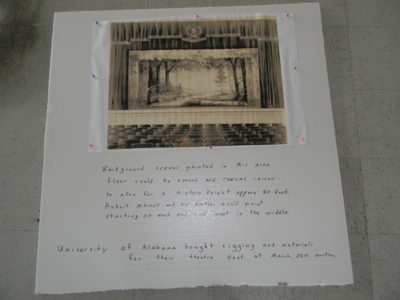 Background scenes painted in this area
floor could be opened and canvas raised
to allow for a picture height approx 60 feet.
Robert Mitchell and his brother would paint
starting on each end and meet in the middle.
University of Alabama bought rigging and materials
for their theatre dept at March, 2010 auction